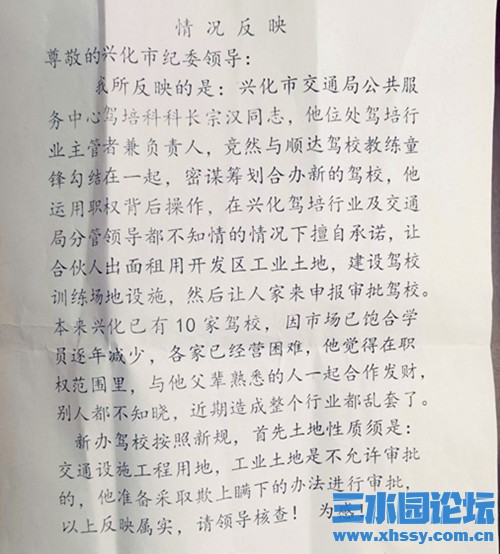 情况反映
尊敬的兴化市纪委领导：
我所反映的是：兴化市交通局公共服
务中心驾培科科长宗汉同志，他位处驾培行
业主管者兼负责人，竟然与顺达驾校教练童
锋勾结在一起，密谋筹划合办新的驾校，他
运用职权背后操作，在兴化驾培行业及交通
局分管领导都不知情的情况下擅自承诺，让
合伙人出面租用开发区工业土地，建设驾校
训练场地设施，然后让人家来申报审批驾校。
本来兴化已有10家驾校，因市场已饱合学
员逐年减少，各家已经营困难，他觉得在职
权范围里，与他父辈熟悉的人一起合作发财，
别人都不知晓，近期造成整个行业都乱套了。
新办驾校按照新规，首先土地性质须是：
交通设施工程用地，工业土地是不允许审批
的，他准备采取欺上瞒下的办法进行审批，
以上反映属实，请领导核查！为感！
三水园论坛
www.xhssy.com.cn